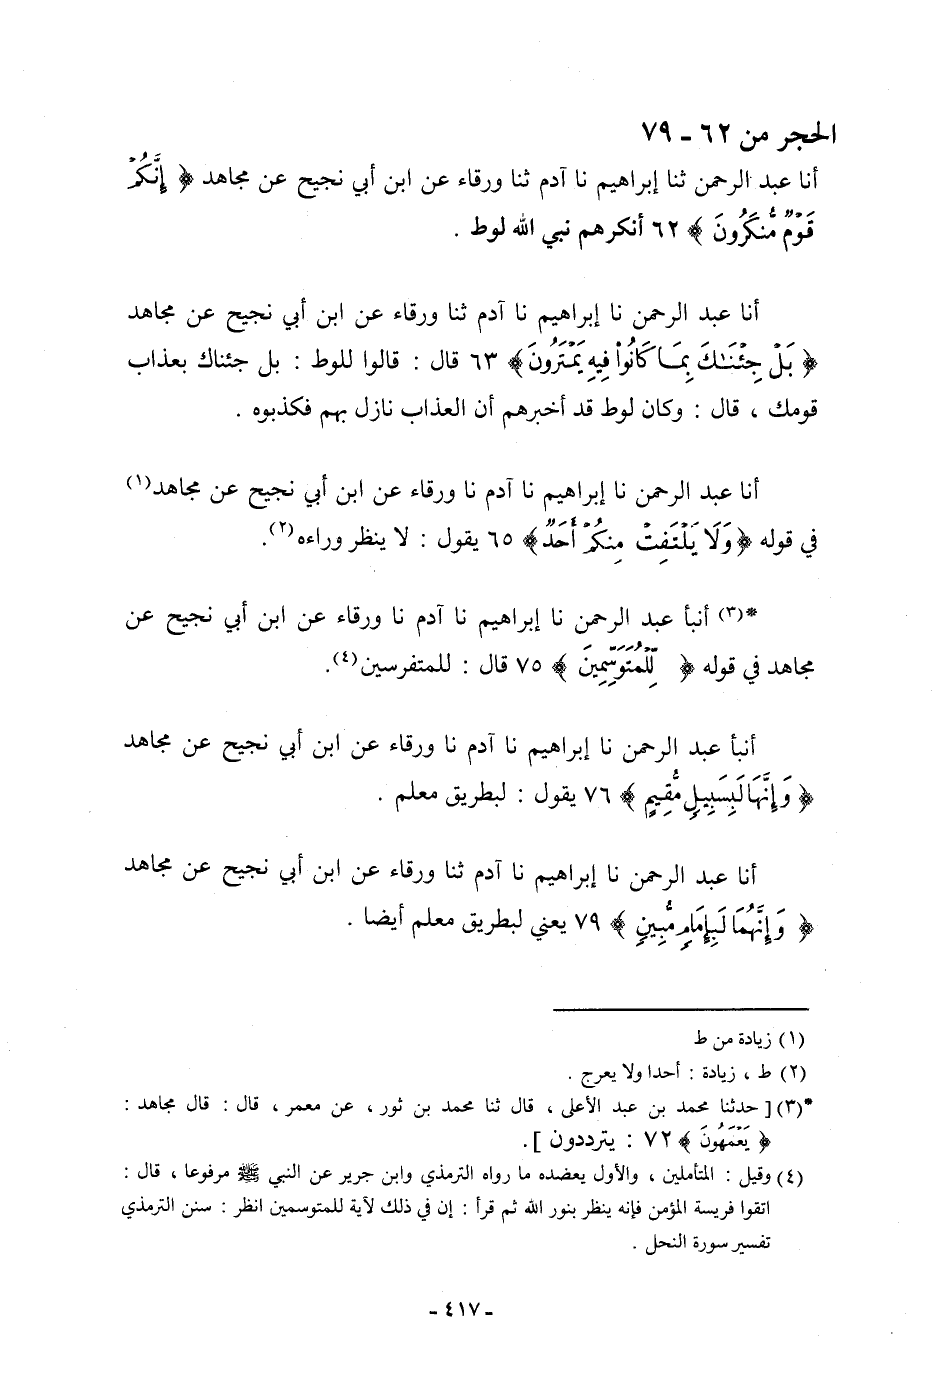 الحجر من ٦٢ - ٧٩
أنا عبد الرحمن ثنا إبراهيم نا آدم ثنا ورقاء عن ابن أبي نجيح عن مجاهد ﴿ إِنَّكُمْ
قَوْمٌ مُّنكَرُونَ ﴾ ٦٢ أنكرهم نبي الله لوط .
أنا عبد الرحمن نا إبراهيم نا آدم ثنا ورقاء عن ابن أبي نجيح عن مجاهد
﴿ بَلْ جِئْنَـٰكَ بِمَا كَانُوا۟ فِيهِ يَمْتَرُونَ ﴾ ٦٣ قال : قالوا للوط : بل جئناك بعذاب
قومك ، قال : وكان لوط قد أخبرهم أن العذاب نازل بهم فكذبوه .
أنا عبد الرحمن نا إبراهيم نا آدم نا ورقاء عن ابن أبي نجيح عن مجاهد(١)
في قوله ﴿ وَلَا يَلْتَفِتْ مِنكُمْ أَحَدٌ ﴾ ٦٥ يقول : لا ينظر وراءه(٢).
*(٣) أنبأ عبد الرحمن نا إبراهيم نا آدم نا ورقاء عن ابن أبي نجيح عن
مجاهد في قوله ﴿ لِّلْمُتَوَسِّمِينَ ﴾ ٧٥ قال : للمتفرسين(٤).
أنبأ عبد الرحمن نا إبراهيم نا آدم نا ورقاء عن ابن أبي نجيح عن مجاهد
﴿ وَإِنَّهَا لَبِسَبِيلٍ مُّقِيمٍ ﴾ ٧٦ يقول : لبطريق معلم .
أنا عبد الرحمن نا إبراهيم نا آدم ثنا ورقاء عن ابن أبي نجيح عن مجاهد
﴿ وَإِنَّهُمَا لَبِإِمَامٍ مُّبِينٍ ﴾ ٧٩ يعني لبطريق معلم أيضا .
(١) زيادة من ط
(٢) ط ، زيادة : أحدا ولا يعرج .
*(٣) [ حدثنا محمد بن عبد الأعلى ، قال ثنا محمد بن ثور ، عن معمر ، قال : قال مجاهد :
﴿ يَعْمَهُونَ ﴾ ٧٢ : يترددون ] .
(٤) وقيل : المتأملين ، والأول يعضده ما رواه الترمذي وابن جرير عن النبي ﷺ مرفوعا ، قال :
اتقوا فريسة المؤمن فإنه ينظر بنور الله ثم قرأ : إن في ذلك لآية للمتوسمين انظر : سنن الترمذي
تفسير سورة النحل .
- ٤١٧ -